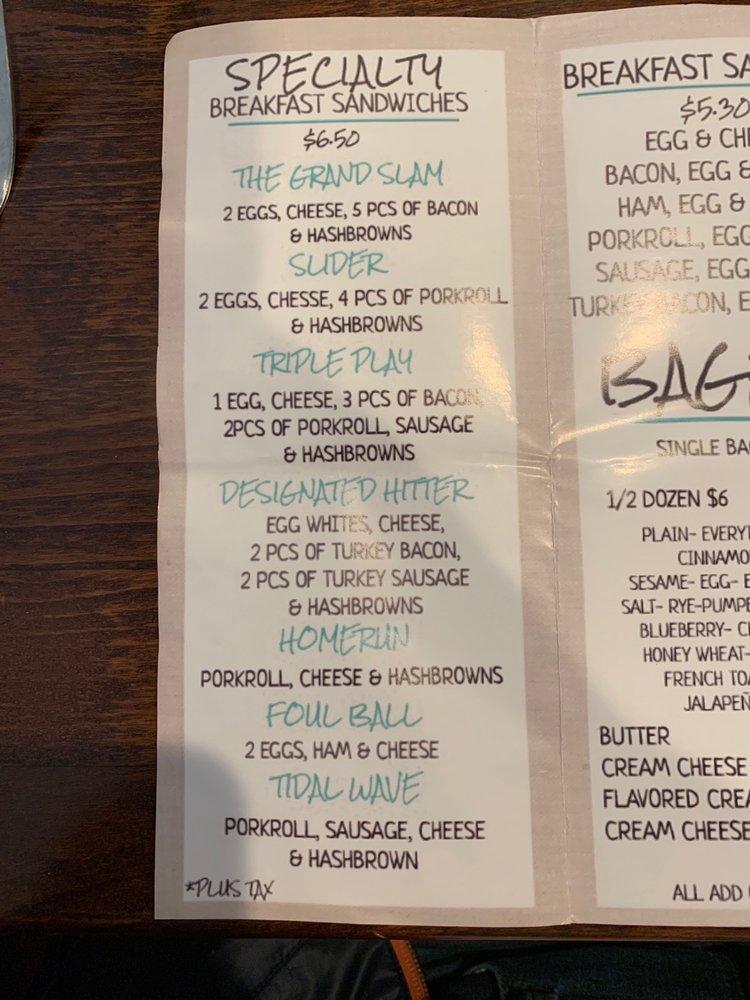 SPECIALTY
BREAKFAST SANDWICHES
$6.50
THE GRAND SLAM
2 EGGS, CHEESE, 5 PCS OF BACON
& HASHBROWNS
SLIDER
2 EGGS, CHESSE, 4 PCS OF PORKROLL
& HASHBROWNS
TRIPLE PLAY
1 EGG, CHEESE, 3 PCS OF BACON,
2PCS OF PORKROLL, SAUSAGE
& HASHBROWNS
DESIGNATED HITTER
EGG WHITES, CHEESE,
2 PCS OF TURKEY BACON,
2 PCS OF TURKEY SAUSAGE
& HASHBROWNS
HOMERUN
PORKROLL, CHEESE & HASHBROWNS
FOUL BALL
2 EGGS, HAM & CHEESE
TIDAL WAVE
PORKROLL, SAUSAGE, CHEESE
& HASHBROWN
*PLUS TAX
BREAKFAST SA
$5.30
EGG & CH
BACON, EGG &
HAM, EGG &
PORKROLL, EGG
SAUSAGE, EGG
TURKEY BACON, E
BAG
SINGLE BA
1/2 DOZEN $6
PLAIN- EVERY
CINNAMO
SESAME- EGG- E
SALT- RYE-PUMPE
BLUEBERRY- C
HONEY WHEAT-
FRENCH TOA
JALAPEÑ
BUTTER
CREAM CHEESE
FLAVORED CREA
CREAM CHEESE
ALL ADD